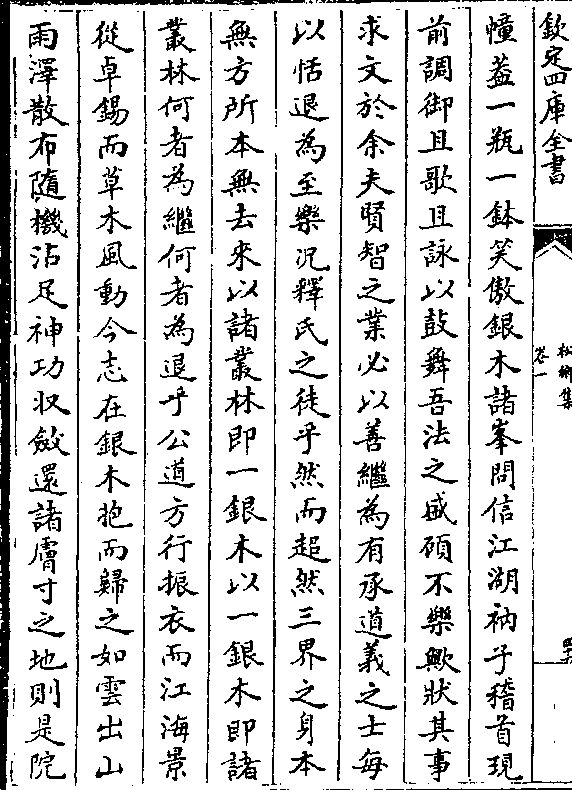 欽定四庫全書
松鄉集
卷一
四六
幢葢一瓶一鉢笑傲銀木諸峯問信江湖衲子稽首現
前調御且歌且詠以鼓舞吾法之盛碩不樂歟狀其事
求文於余夫賢智之業必以善繼為有承道義之士每
以恬退為至樂況釋氏之徒乎然而超然三界之身本
無方所本無去來以諸叢林即一銀木以一銀木即諸
叢林何者為繼何者為退乎公道方行振衣而江海景
從卓錫而草木風動今志在銀木抱而歸之如雲出山
雨澤散布隨機沾足神功収斂還諸膚寸之地則是院